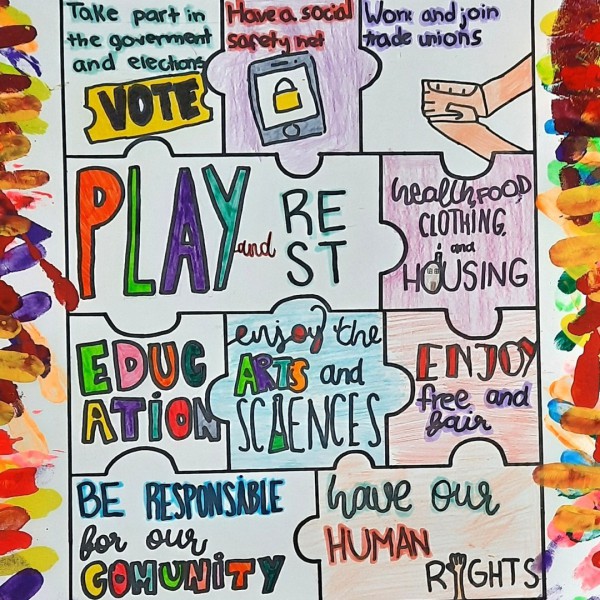 Take part in
the goverment
and elections
VOTE
Have a social
safety net
Work and join
trade unions
PLAY and RE
ST
health, FOOD
CLOTHING,
and
HOUSING
EDUC
ATION
enjoy the
ARTS and
SCIENCES
ENJOY
free and
fair
BE RESPONSIBLE
for our
COMUNITY
have our
HUMAN
RIGHTS